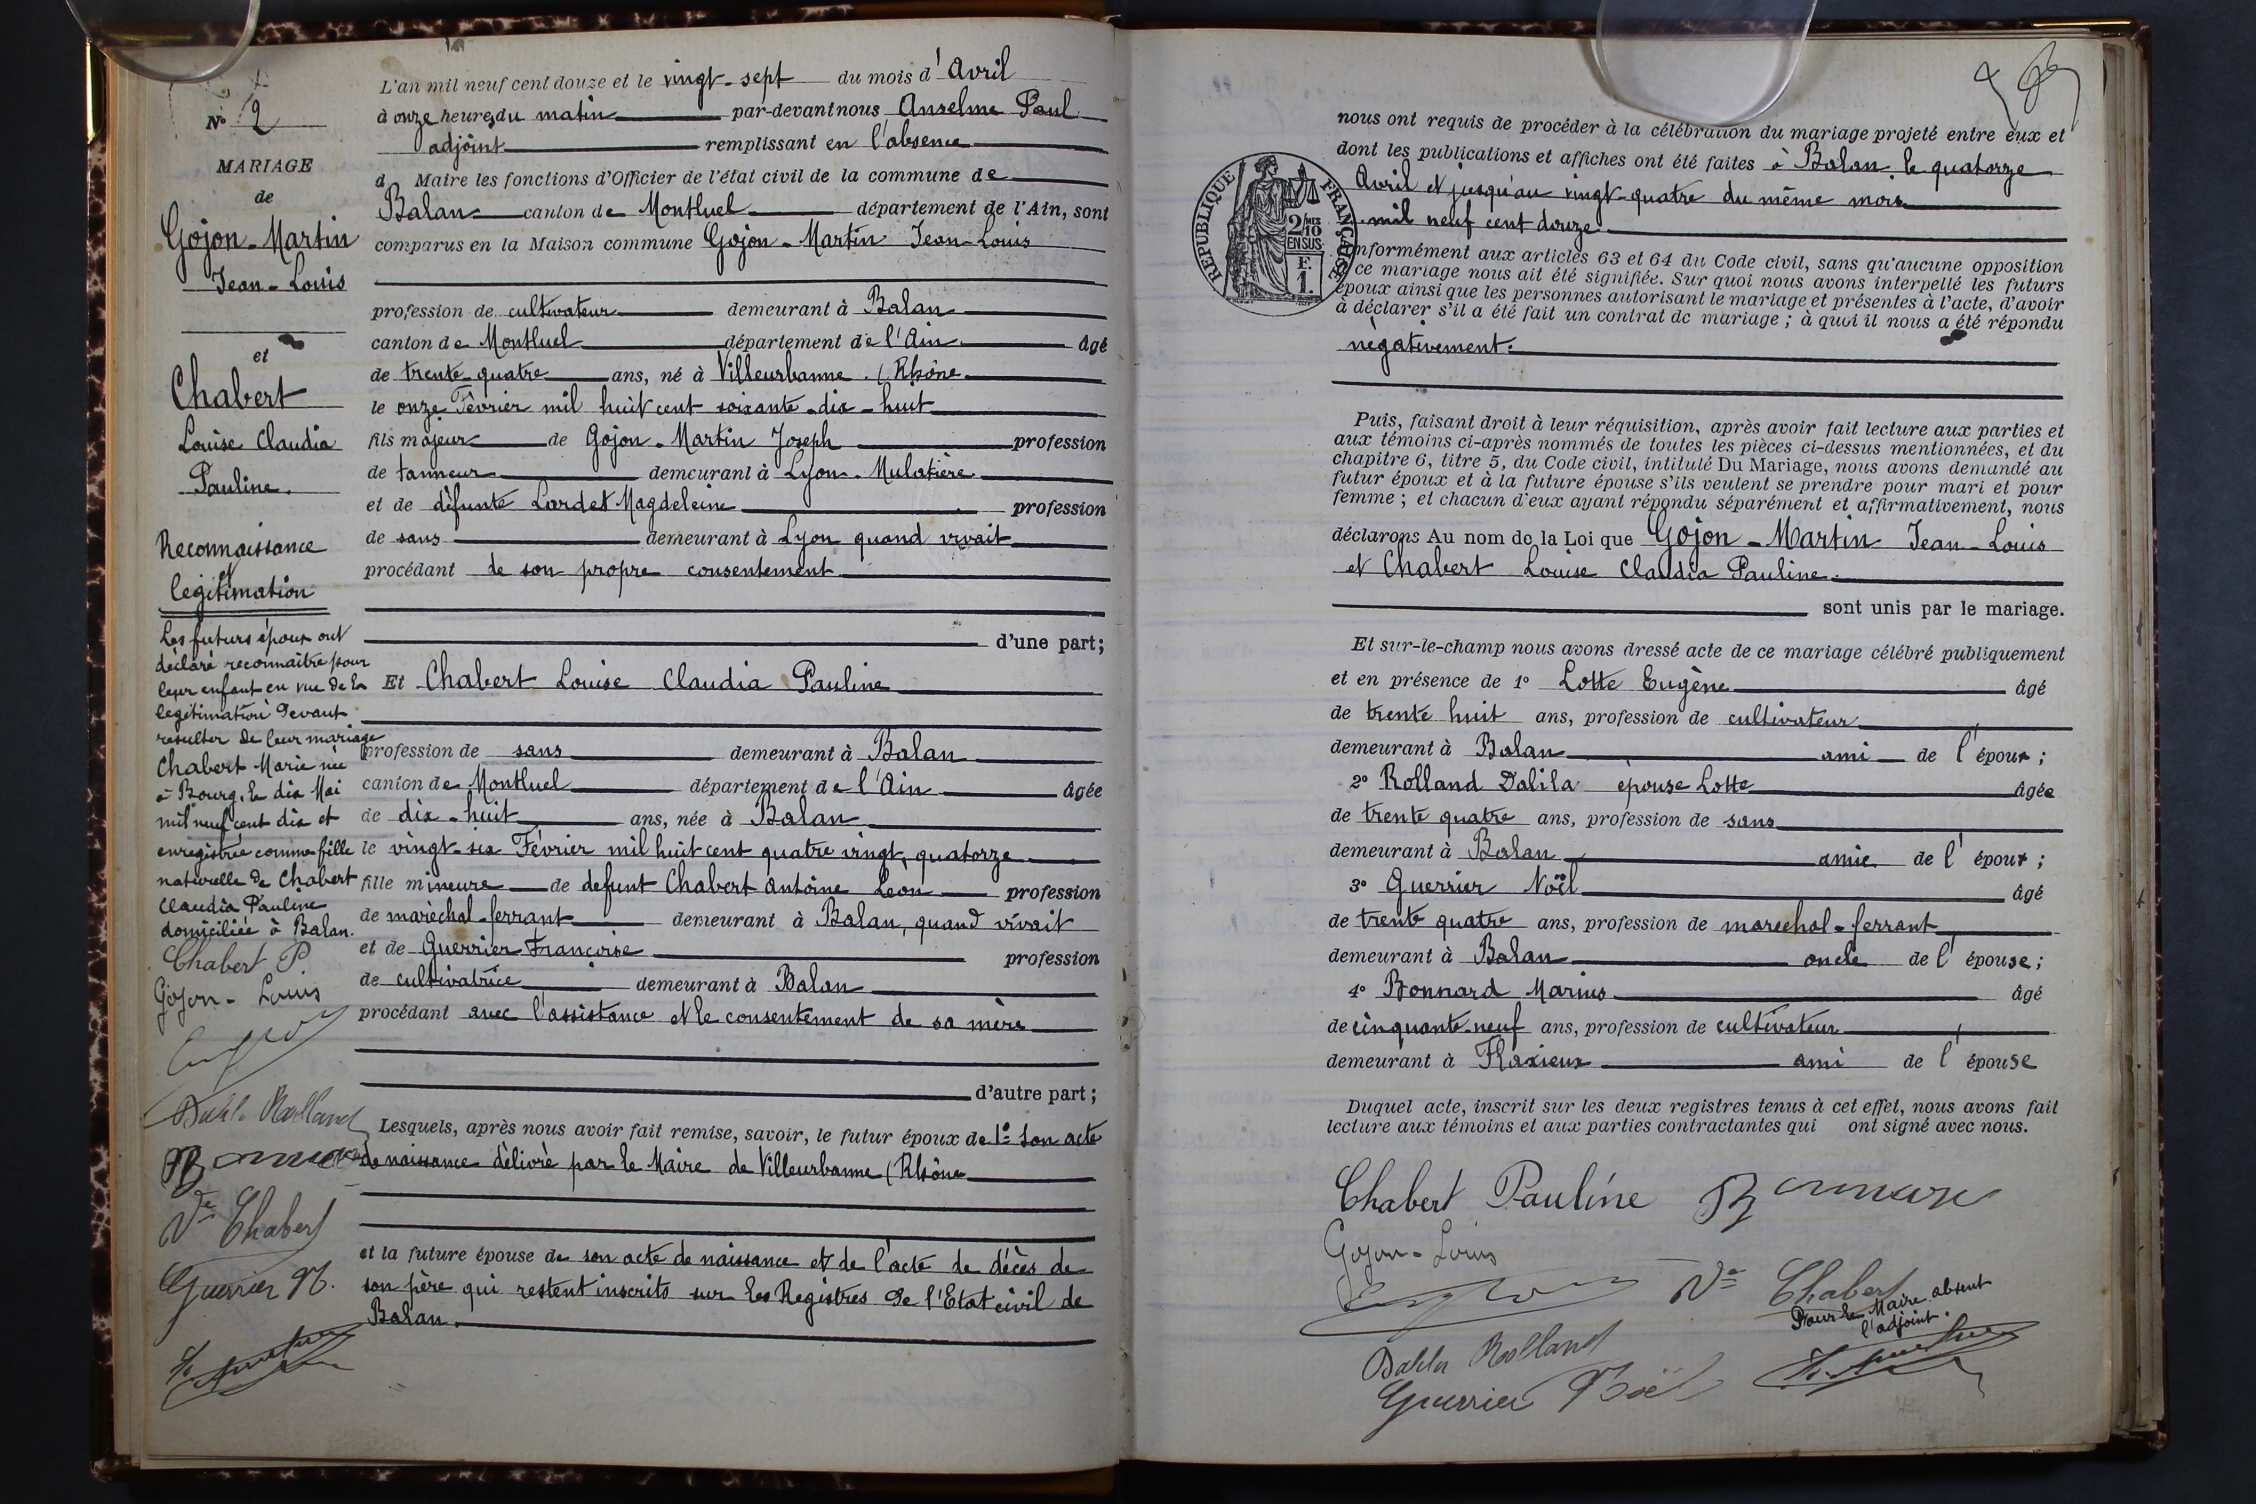 N° 2
MARIAGE
de
Gojon-Martin
Jean-Louis
et
Chabert
Louise Claudia
Pauline.
Reconnaissance
légitimation
Les futurs époux ont
déclaré reconnaître pour
leur enfant en vue de la
legitimation devant
resulter de leur mariage
Chabert Marie née
à Bourg, le dix Mai
mil neuf cent dix et
enregistrée comme fille
naturelle de Chabert
Claudia Pauline
domiciliée à Balan.
Chabert P.
Gojon-Louis
Rolland
Ve Chabert
Guerrier N.
L'an mil neuf cent douze et le vingt-sept du mois d'Avril
à onze heures du matin par-devant nous Anselme Paul
adjoint remplissant en l'absence
d Maire les fonctions d'Officier de l'état civil de la commune de
Balan canton de Montluel département de l'Ain, sont
comparus en la Maison commune Gojon-Martin Jean-Louis
profession de cultivateur demeurant à Balan
canton de Montluel département de l'Ain âgé
de trente-quatre ans, né à Villeurbanne (Rhône
le onze Février mil huit cent soixante-dix-huit
fils majeur de Gojon-Martin Joseph profession
de tanneur demeurant à Lyon-Mulatière
et de défunte Lardet Magdeleine profession
de sans demeurant à Lyon quand vivait
procédant de son propre consentement
d'une part;
Et Chabert Louise Claudia Pauline
profession de sans demeurant à Balan
canton de Montluel département de l'Ain âgée
de dix-huit ans, née à Balan
le vingt-six Février mil huit cent quatre vingt quatorze
fille mineure de defunt Chabert Antoine Léon profession
de maréchal-ferrant demeurant à Balan, quand vivait
et de Guerrier Françoise profession
de cultivatrice demeurant à Balan
procédant avec l'assistance et le consentement de sa mère
d'autre part;
Lesquels, après nous avoir fait remise, savoir, le futur époux de 1° son acte
de naissance délivré par le Maire de Villeurbanne (Rhône
et la future épouse de son acte de naissance et de l'acte de décès de
son père qui restent inscrits sur les Registres de l'Etat civil de
Balan.
RÉPUBLIQUE FRANÇAISE
2/10 MES
EN SUS
F.
1.
nous ont requis de procéder à la célébration du mariage projeté entre eux et
dont les publications et affiches ont été faites à Balan le quatorze
Avril et jusqu'au vingt-quatre du même mois
mil neuf cent douze
nformément aux articles 63 et 64 du Code civil, sans qu'aucune opposition
ce mariage nous ait été signifiée. Sur quoi nous avons interpellé les futurs
époux ainsi que les personnes autorisant le mariage et présentes à l'acte, d'avoir
à déclarer s'il a été fait un contrat de mariage ; à quoi il nous a été répondu
négativement.
Puis, faisant droit à leur réquisition, après avoir fait lecture aux parties et
aux témoins ci-après nommés de toutes les pièces ci-dessus mentionnées, et du
chapitre 6, titre 5, du Code civil, intitulé Du Mariage, nous avons demandé au
futur époux et à la future épouse s'ils veulent se prendre pour mari et pour
femme ; et chacun d'eux ayant répondu séparément et affirmativement, nous
déclarons Au nom de la Loi que Gojon-Martin Jean-Louis
et Chabert Louise Claudia Pauline.
sont unis par le mariage.
Et sur-le-champ nous avons dressé acte de ce mariage célébré publiquement
et en présence de 1° Lotte Eugène âgé
de trente huit ans, profession de cultivateur
demeurant à Balan ami de l'époux ;
2° Rolland Dalila épouse Lotte âgée
de trente quatre ans, profession de sans
demeurant à Balan amie de l'époux ;
3° Guerrier Noël âgé
de trente quatre ans, profession de marechal-ferrant
demeurant à Balan oncle de l'épouse ;
4° Bonnard Marius âgé
de cinquante-neuf ans, profession de cultivateur
demeurant à Flaxieux ami de l'épouse
Duquel acte, inscrit sur les deux registres tenus à cet effet, nous avons fait
lecture aux témoins et aux parties contractantes qui ont signé avec nous.
Chabert Pauline
Gojon-Louis
Ve Chabert
Pour le Maire absent
l'adjoint.
Rolland
Guerrier Noël